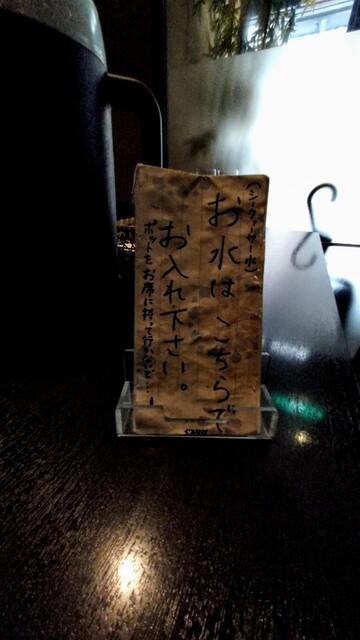 (シークヮーサー水)
お水は こちらで
お入れ下さい。
ポットをお席に持って行かないで…!